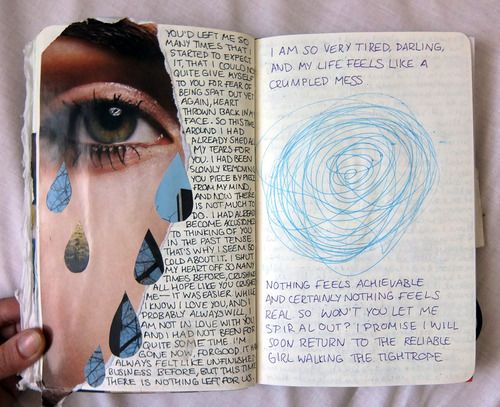 YOU'D LEFT ME SO
MANY TIMES THAT I
STARTED TO EXPECT
IT, THAT I COULD NOT
QUITE GIVE MYSELF
TO YOU FOR FEAR OF
BEING SPAT OUT YET
AGAIN, HEART
THROWN BACK IN MY
FACE. SO THIS TIME
AROUND I HAD
ALREADY SHED ALL
MY TEARS FOR
YOU. I HAD BEEN
SLOWLY REMOVING
YOU PIECE BY PIECE
FROM MY MIND,
AND NOW THERE
IS NOT MUCH TO
DO. I HAD ALREADY
BECOME ACCUSTOMED
TO THINKING OF YOU
IN THE PAST TENSE.
THAT'S WHY I SEEM SO
COLD ABOUT IT. I SHUT
MY HEART OFF SO MANY
TIMES BEFORE, CRUSHING
ALL HOPE LIKE YOU CRUSHED
ME — IT WAS EASIER. WHILE
I KNOW I LOVE YOU, AND I
PROBABLY ALWAYS WILL, I
AM NOT IN LOVE WITH YOU
AND I HAD NOT BEEN FOR
QUITE SOME TIME. I'M
GONE NOW, FOR GOOD. IT HAD
ALWAYS FELT LIKE UNFINISHED
BUSINESS BEFORE, BUT THIS TIME
THERE IS NOTHING LEFT FOR US.
I AM SO VERY TIRED, DARLING,
AND MY LIFE FEELS LIKE A
CRUMPLED MESS
NOTHING FEELS ACHIEVABLE
AND CERTAINLY NOTHING FEELS
REAL SO WON'T YOU LET ME
SPIRAL OUT? I PROMISE I WILL
SOON RETURN TO THE RELIABLE
GIRL WALKING THE TIGHTROPE